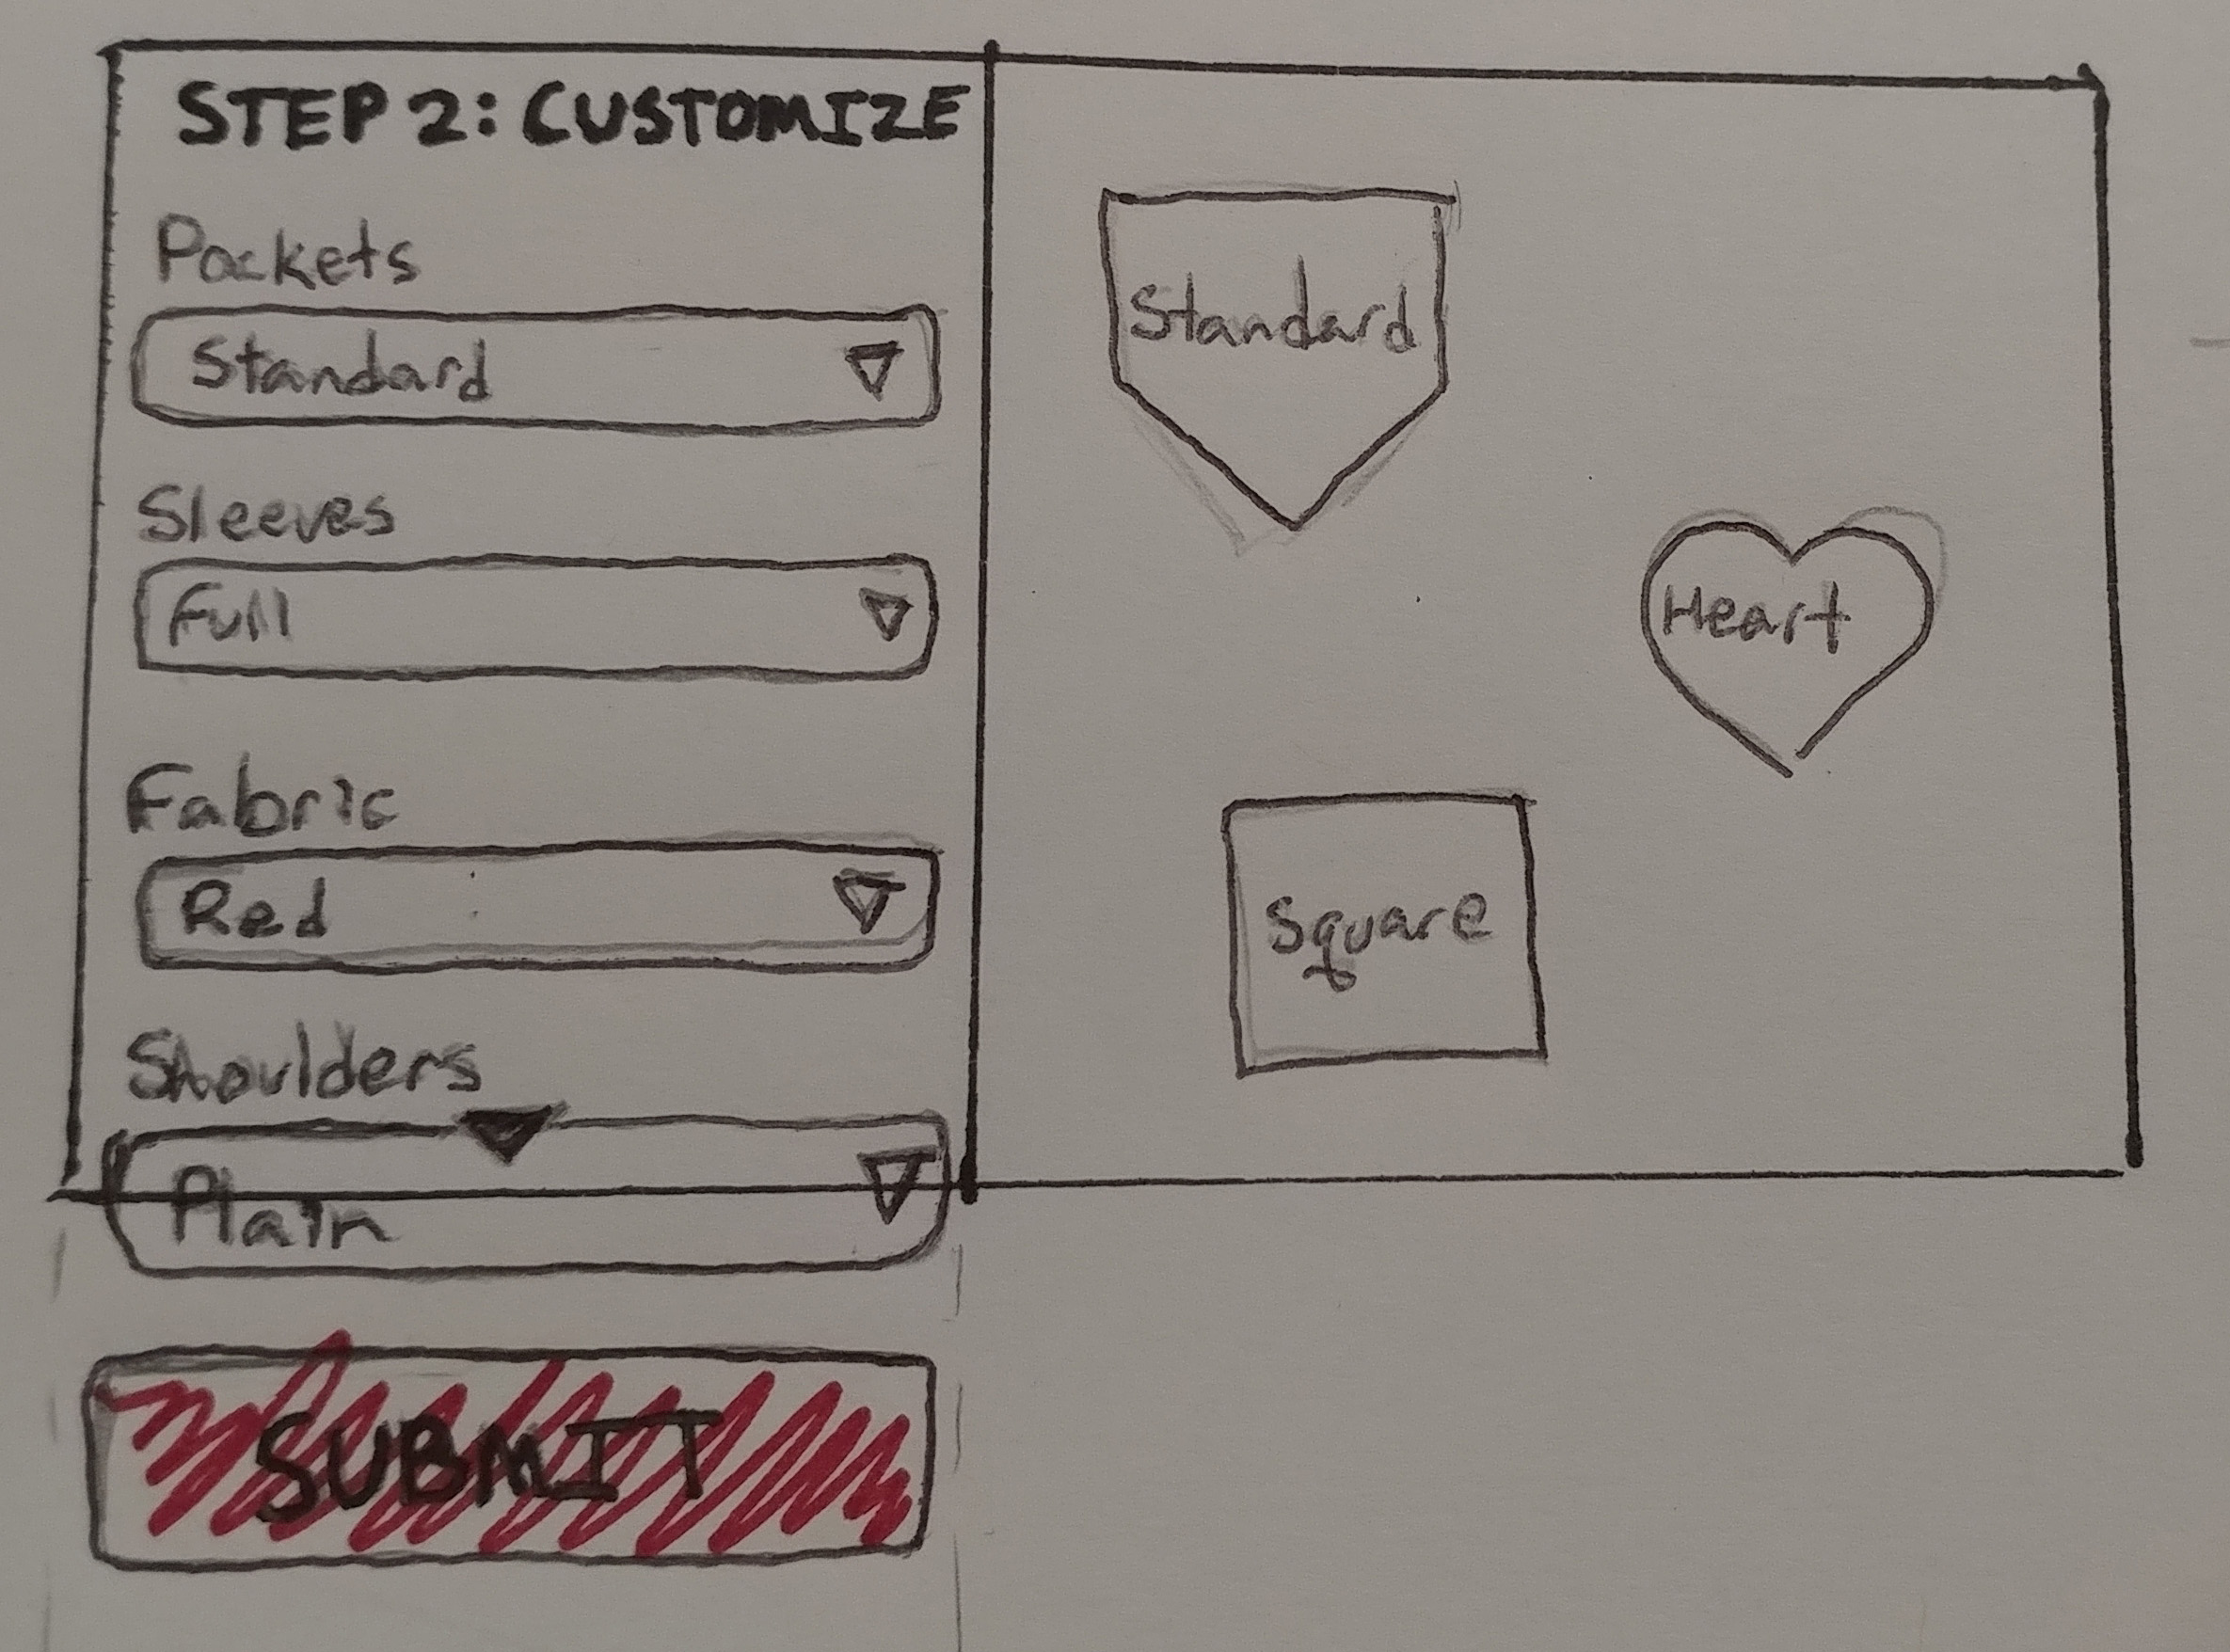 STEP 2: CUSTOMIZE
Pockets
Standard
Sleeves
Full
Fabric
Red
Shoulders
Plain
SUBMIT
Standard
Heart
Square